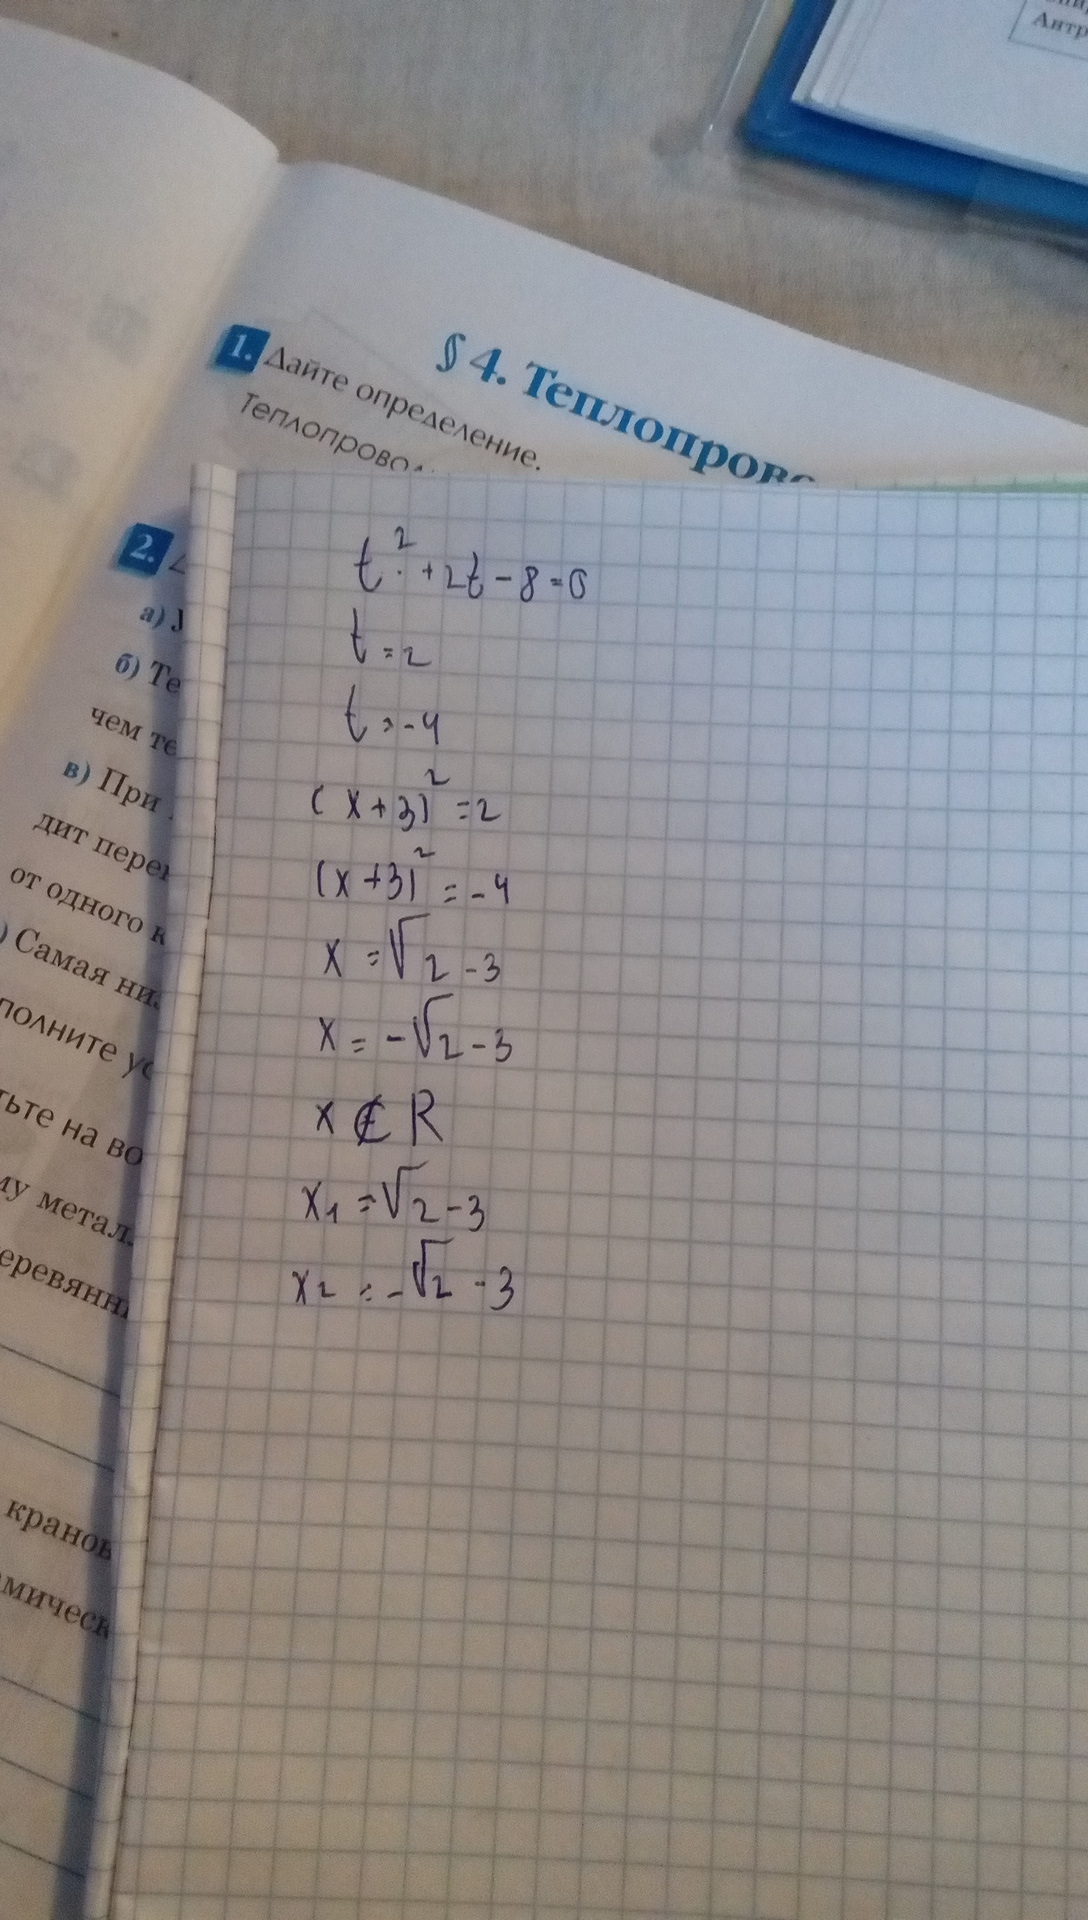 Антр
§ 4. Теплопрово
1. Дайте определение.
Теплопровод
2.
а)
б) Те
чем те
в) При
дит перен
от одного к
) Самая низ
полните ус
тьте на во
му метал.
еревянны
кранов
мическ
t² + 2t - 8 = 0
t = 2
t = -4
(x + 3)² = 2
(x + 3)² = -4
x = √2 - 3
x = -√2 - 3
x ∉ R
x₁ = √2 - 3
x₂ = -√2 - 3